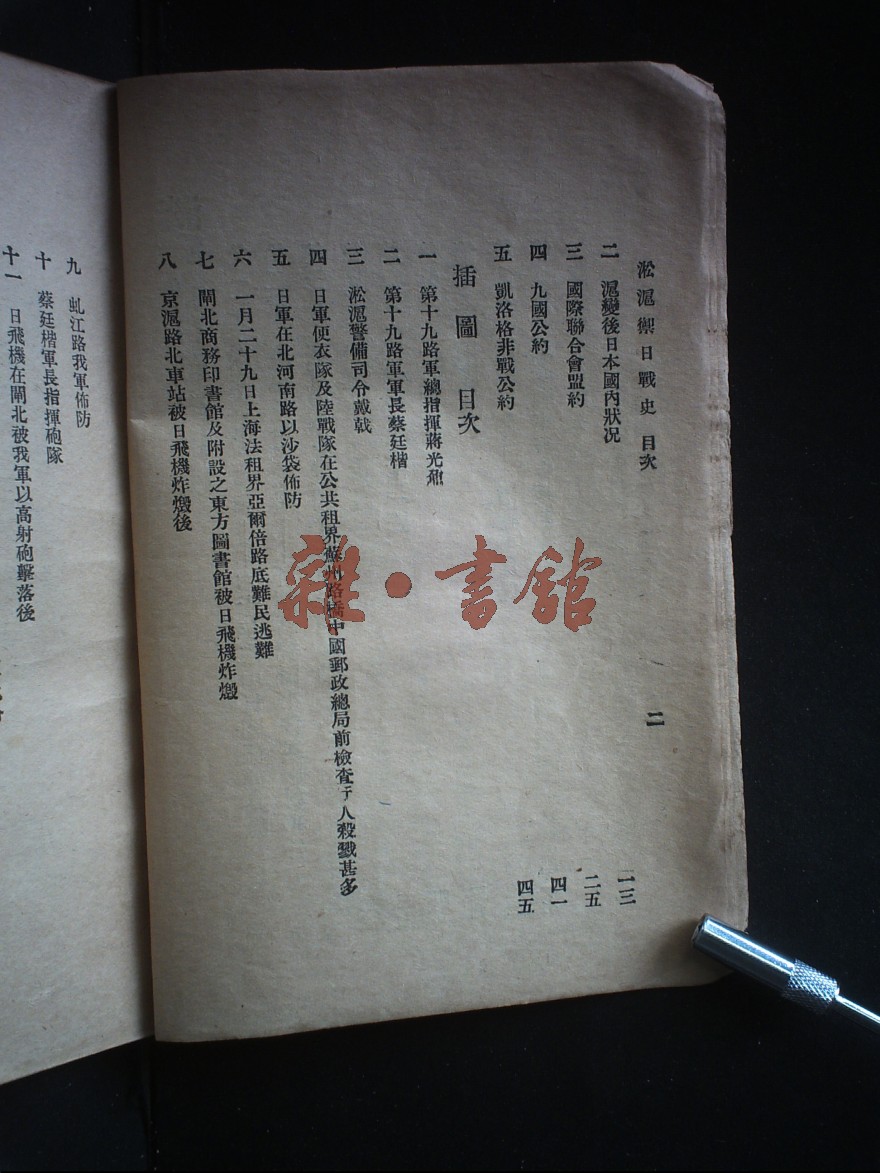 淞滬禦日戰史 目次
二
二 滬變後日本國內狀况 一三
三 國際聯合會盟約 二五
四 九國公約 四一
五 凱洛格非戰公約 四五
插圖 目次
一 第十九路軍總指揮蔣光鼐
二 第十九路軍軍長蔡廷楷
三 淞滬警備司令戴戟
四 日軍便衣隊及陸戰隊在公共租界蘇州路橋中國郵政總局前檢查行人殺戮甚多
五 日軍在北河南路以沙袋佈防
六 一月二十九日上海法租界亞爾倍路底難民逃難
七 閘北商務印書館及附設之東方圖書館被日飛機炸燬
八 京滬路北車站被日飛機炸燬後
九 虬江路我軍佈防
十 蔡廷楷軍長指揮砲隊
十一 日飛機在閘北被我軍以高射砲擊落後
雜·書館